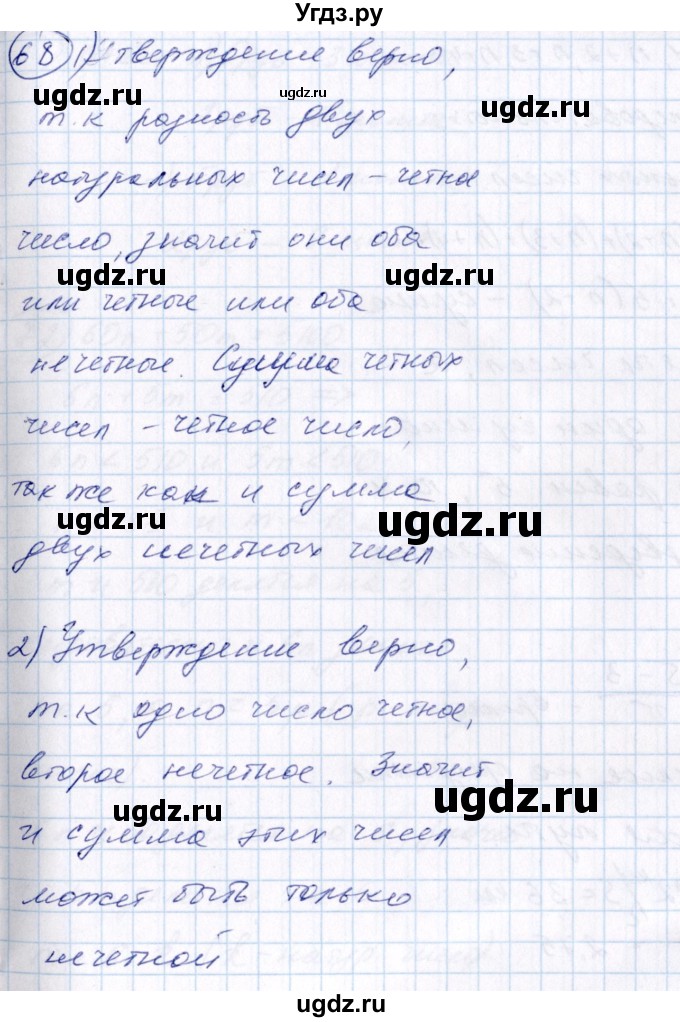 Угдз.ру
68 1) Утверждение верно,
ugdz.ru ugdz.ru ugdz.ru
т.к разность двух
натуральных чисел – четное
число, значит они оба
ugdz.ru ugdz.ru
или четные или оба
нечетные. Сумма четных
ugdz.ru ugdz.ru
чисел – четное число,
так же как и сумма
ugdz.ru ugdz.ru
двух нечетных чисел
2) Утверждение верно,
ugdz.ru ugdz.ru
т.к одно число четное,
второе нечетное. Значит
ugdz.ru ugdz.ru
и сумма этих чисел
может быть только
нечетной
ugdz.ru